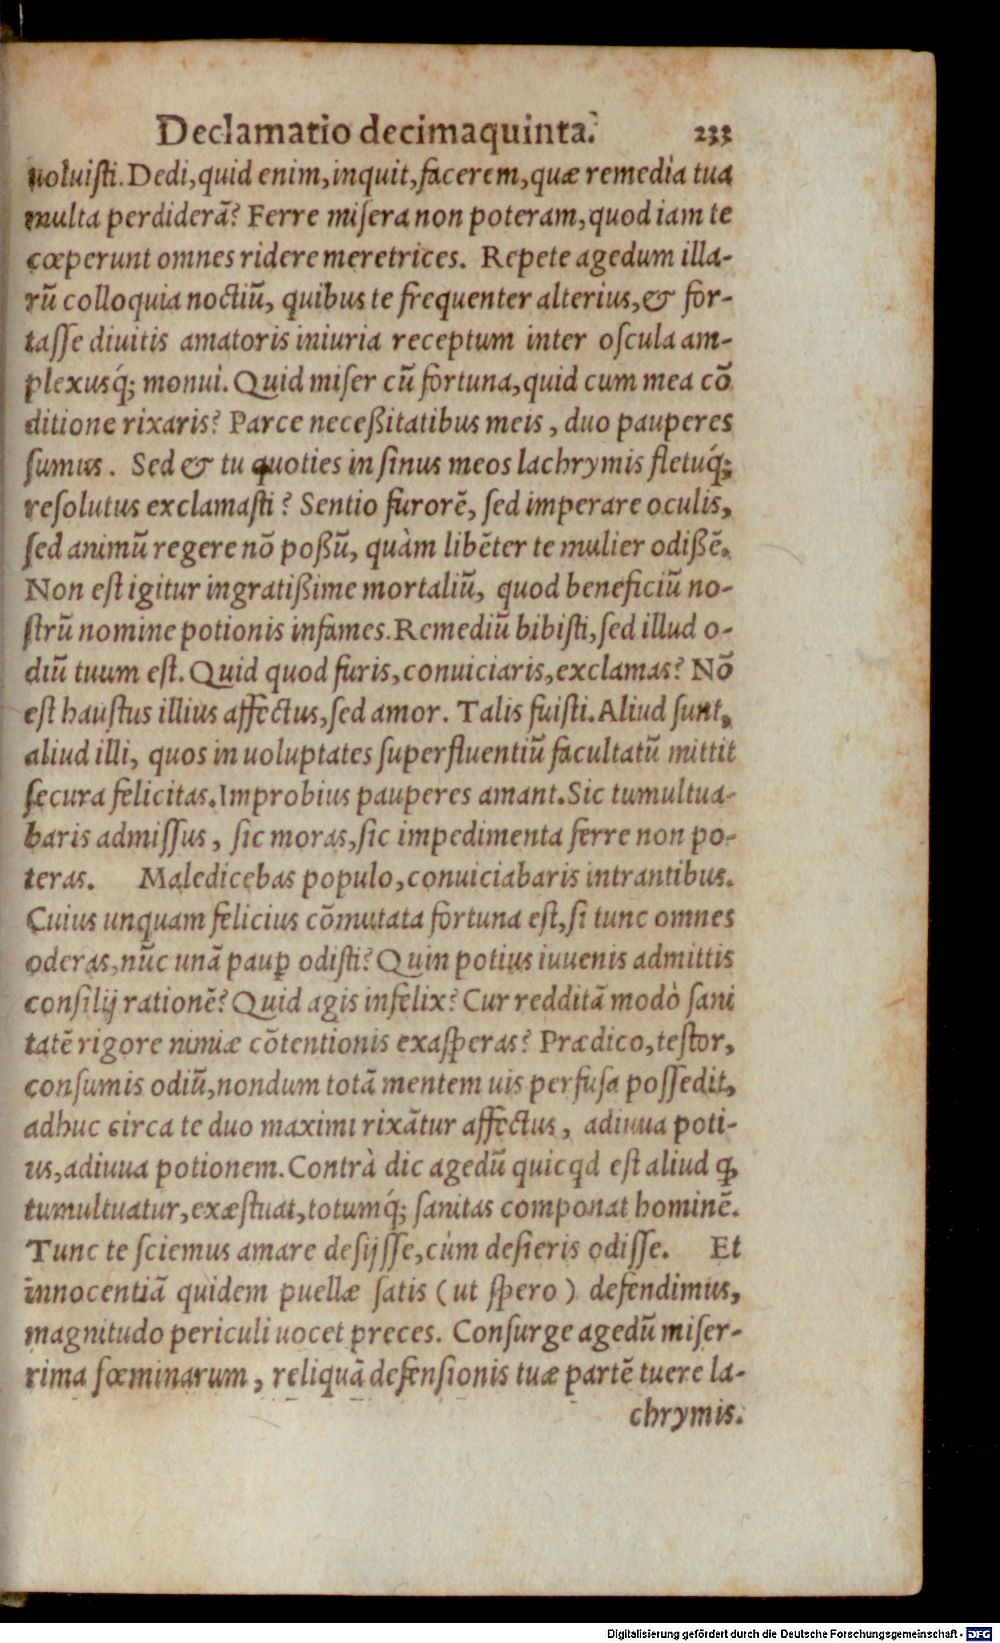 Declamatio decimaquinta. 233
uoluiſti. Dedi, quid enim, inquit, facerem, quæ remedia tua
multa perdiderā? Ferre miſera non poteram, quod iam te
cœperunt omnes ridere meretrices. Repete agedum illa-
rū colloquia noctiū, quibus te frequenter alterius, & for-
taſſe diuitis amatoris iniuria receptum inter oſcula am-
plexusq́; monui. Quid miſer cū fortuna, quid cum mea cō
ditione rixaris? Parce neceßitatibus meis, duo pauperes
ſumus. Sed & tu quoties in ſinus meos lachrymis fletuq́;
reſolutus exclamaſti? Sentio furorē, ſed imperare oculis,
ſed animū regere nō poßū, quàm libēter te mulier odißē.
Non eſt igitur ingratißime mortaliū, quod beneficiū no-
ſtrū nomine potionis infames. Remediū bibiſti, ſed illud o-
diū tuum eſt. Quid quod furis, conuiciaris, exclamas? Nō
eſt hauſtus illius affectus, ſed amor. Talis fuiſti. Aliud ſunt,
aliud illi, quos in uoluptates ſuperfluentiū facultatū mittit
ſecura felicitas. Improbius pauperes amant. Sic tumultua-
baris admiſſus, ſic moras, ſic impedimenta ferre non po-
teras. Maledicebas populo, conuiciabaris intrantibus.
Cuius unquam felicius cōmutata fortuna eſt, ſi tunc omnes
oderas, nūc unā paup̱ odiſti? Quin potius iuuenis admittis
conſilij rationē? Quid agis infelix? Cur redditā modò ſani
tatē rigore nimiæ cōtentionis exaſperas? Prædico, teſtor,
conſumis odiū, nondum totā mentem uis perfuſa poſſedit,
adhuc circa te duo maximi rixātur affectus, adiuua poti-
us, adiuua potionem. Contrà dic agedū quicqd eſt aliud ꝙ
tumultuatur, exæſtuat, totumq́; ſanitas componat hominē.
Tunc te ſciemus amare deſijſſe, cùm deſieris odiſſe. Et
innocentiā quidem puellæ ſatis (ut ſpero) defendimus,
magnitudo periculi uocet preces. Conſurge agedū miſer-
rima fœminarum, reliquā defenſionis tuæ partē tuere la-
chrymis.
Digitalisierung gefördert durch die Deutsche Forschungsgemeinschaft - DFG